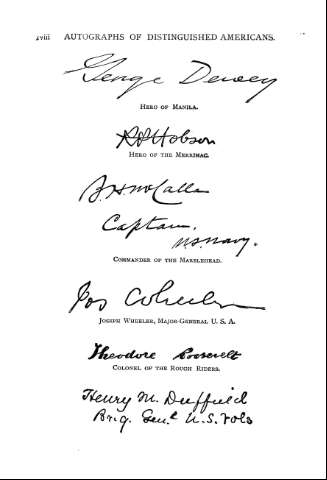 xviii AUTOGRAPHS OF DISTINGUISHED AMERICANS.
George Dewey
HERO OF MANILA.
R P Hobson
HERO OF THE MERRIMAC.
B. H. McCalla
Captain.
U.S. Navy.
COMMANDER OF THE MARBLEHEAD.
Jos Wheeler
JOSEPH WHEELER, MAJOR-GENERAL U. S. A.
Theodore Roosevelt
COLONEL OF THE ROUGH RIDERS.
Henry M. Duffield
Brig. Genl U.S. Vols